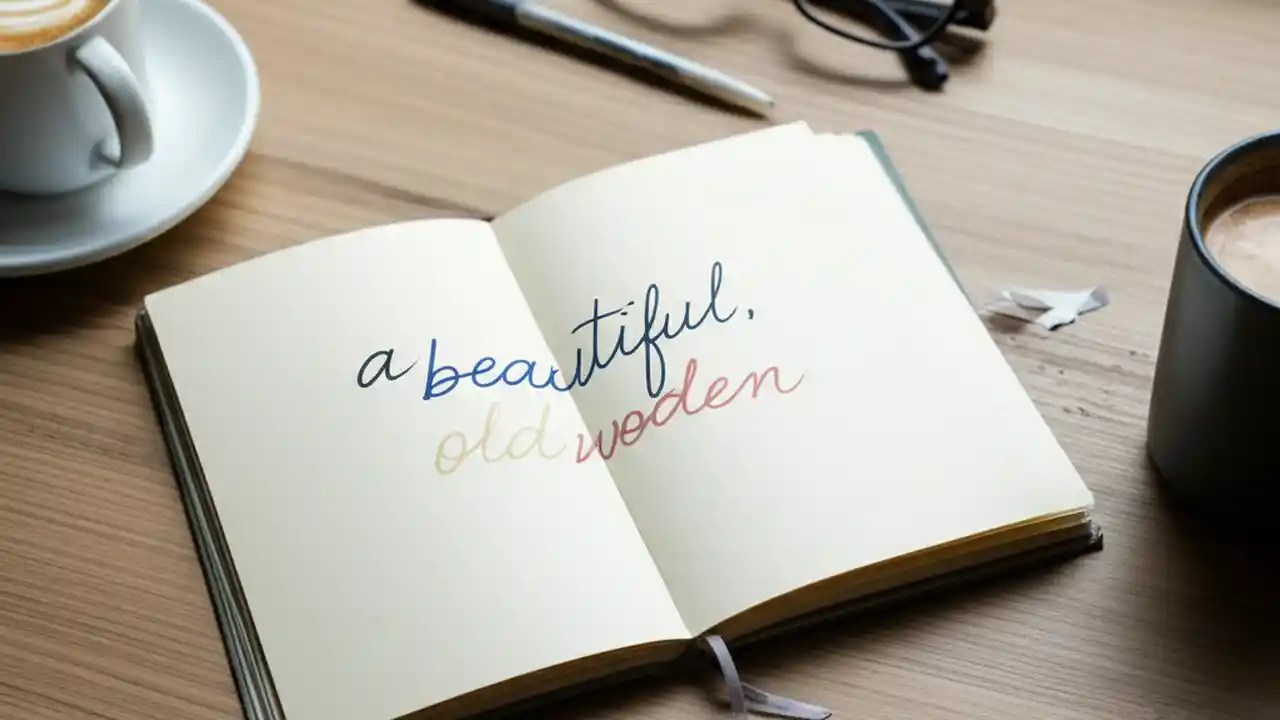 a beautiful,
old woden